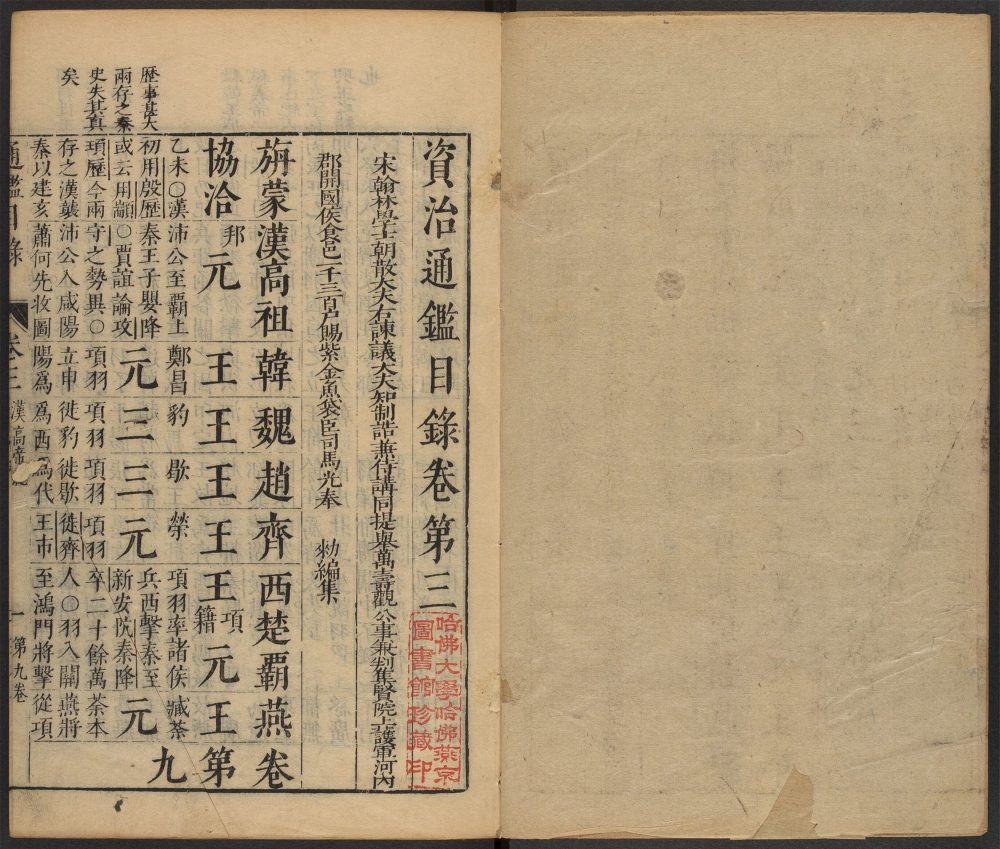 資治通鑑目錄卷第三
宋翰林學士朝散大夫右諫議大夫知制誥兼侍講同提舉萬壽觀公事兼判集賢院上護軍河內
郡開國侯食邑一千三百戶賜紫金魚袋臣司馬光奉 勑編集
旃蒙漢高祖韓魏趙齊西楚霸燕卷
協洽邦元王王王王王項籍元王第九
乙未〇漢沛公至霸上鄭昌豹歇榮項羽率諸侯臧荼
初用殷歷秦王子嬰降元三三元兵西擊秦至元
或云用顓〇賈誼論攻新安阬秦降
項歷今兩守之勢異〇項羽項羽項羽項羽卒二十餘萬荼本
存之漢襲沛公入咸陽立申徙豹徙歇徙齊人〇羽入關燕將
秦以建亥蕭何先收圖陽為為西為代王市至鴻門將擊從項
歷事甚大
兩存之秦
史失其真
矣
通鑑目錄 卷三 漢高帝 一 第九卷
哈佛大學哈佛燕京
圖書館珍藏印